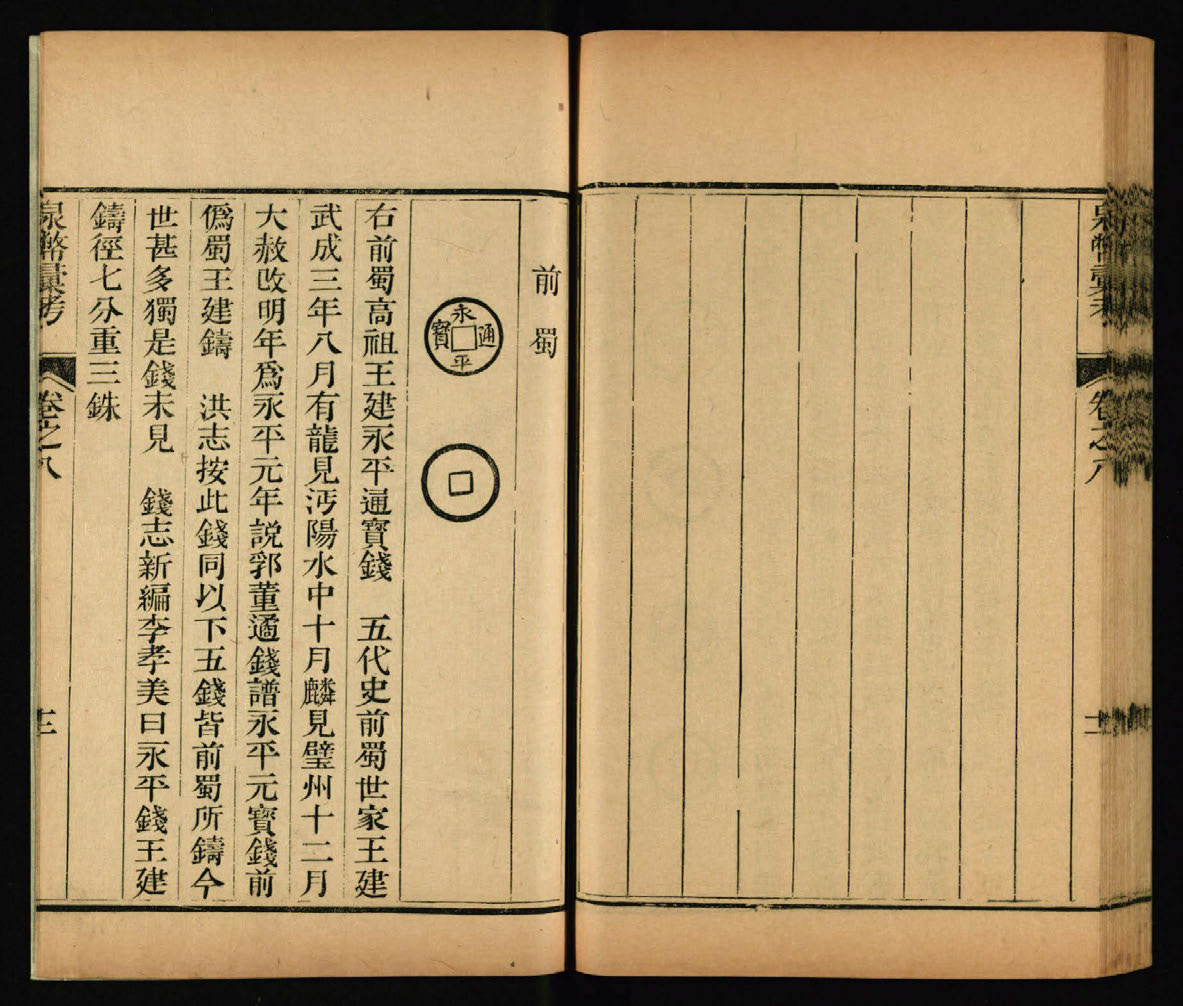 泉幣彙考 卷之八
前蜀
永平通寶
右前蜀高祖王建永平通寶錢 五代史前蜀世家王建
武成三年八月有龍見沔陽水中十月麟見璧州十二月
大赦改明年爲永平元年説郛董遹錢譜永平元寶錢前
僞蜀王建鑄 洪志按此錢同以下五錢皆前蜀所鑄今
世甚多獨是錢未見 錢志新編李孝美曰永平錢王建
鑄徑七分重三銖
泉幣彙考 卷之八